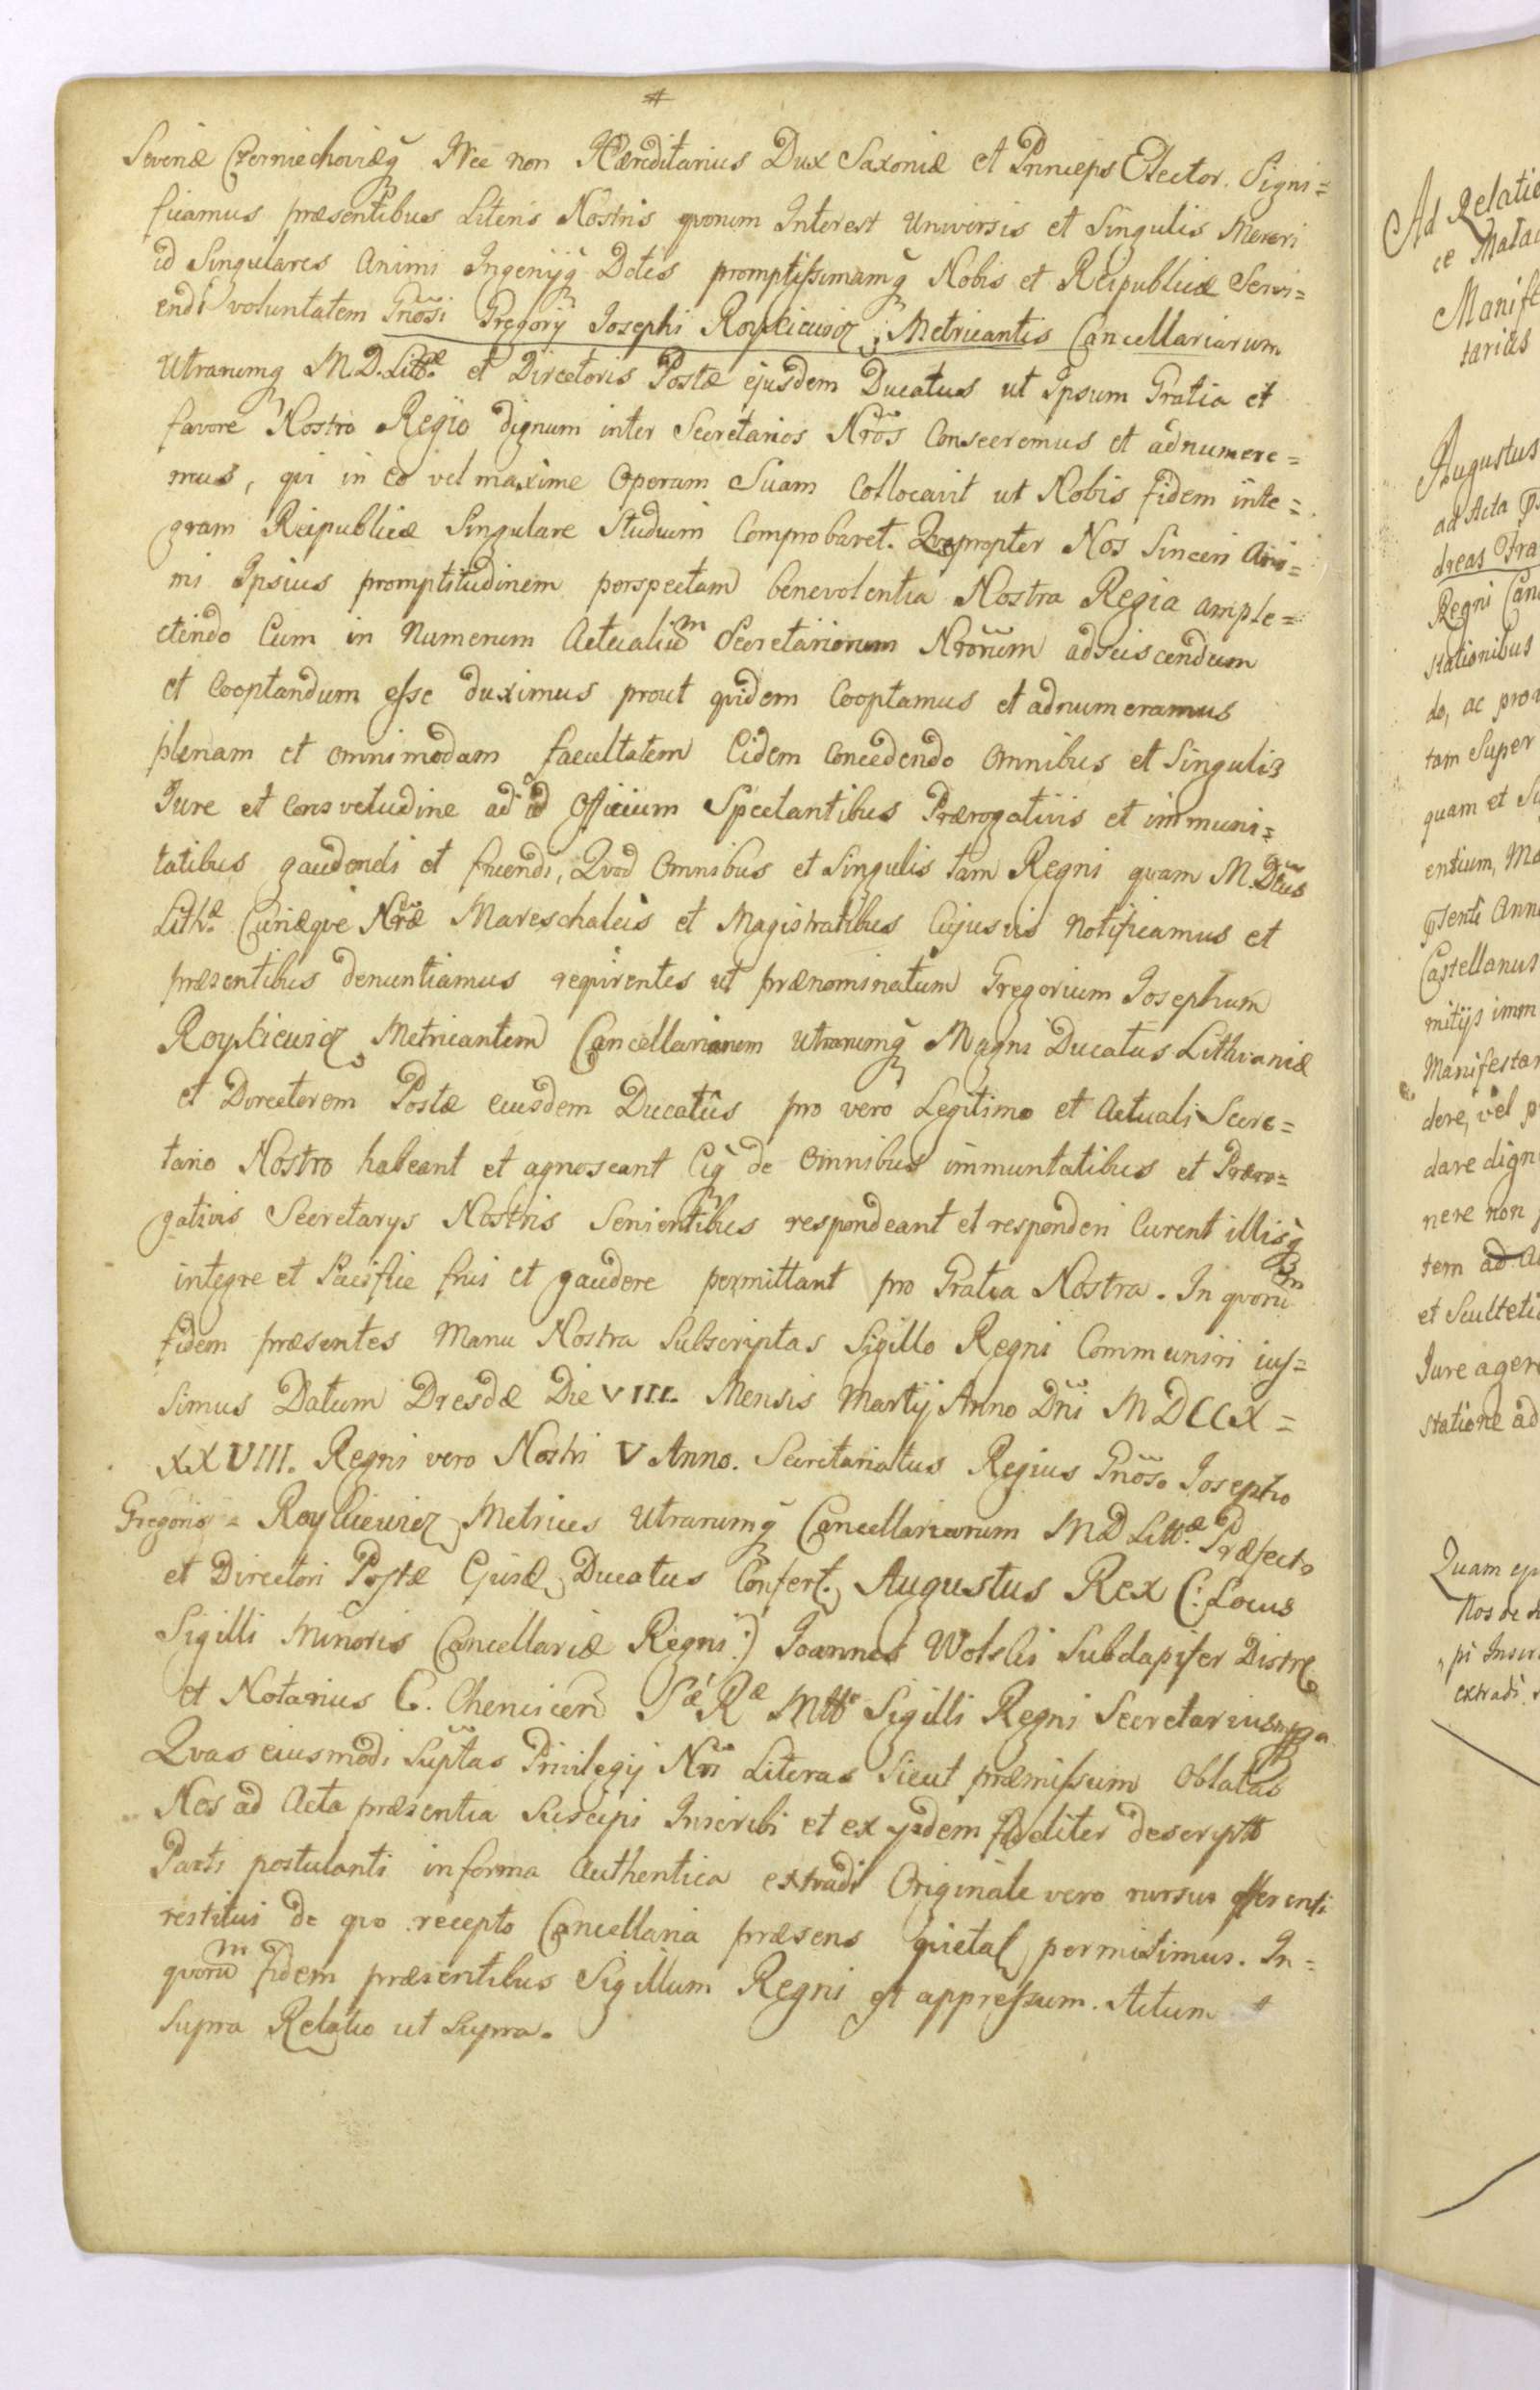 #
Severiæ Czerniechoviæq̃ Nec non Hæreditarius Dux Saxoniæ et Princeps Elector. Signi=
ficamus præsentibus Literis Nostris quorum Interest Universis et Singulis Mereri
id Singulares Animi Ingenijq̃ Dotes promptissimamq̃ Nobis et Reipublicæ Servi=
endi voluntatem Gnosi Gregorij Josephi Roykiewicz, Metricantis Cancellariarum
Utrarumq̃ M.D.Litt.æ et Directoris Postæ ejusdem Ducatus ut Ipsum Gratia et
favore Nostro Regio dignum inter Secretarios Nros Conseeremus et adnumere=
mus, qvi in eo vel maxime Operam Suam Collocavit ut Nobis fidem inte=
gram Reipublicæ Singulare Studium Comprobaret. Qvapropter Nos Sinceri Ani=
mi Ipsius promptitudinem perspectam benevolentia Nostra Regia ample=
ctendo Eum in Numerum Actualium Secretariorum Nrorum adsciscendum
et Cooptandum esse duximus prout qvidem Cooptamus et adnumeramus
plenam et omnimodam facultatem Eidem Concedendo Omnibus et Singulis
Jure et Consvetudine ad id Officium Spectantibus Prærogativis et immuni=
tatibus gaudendi et fruendi, Qvod Omnibus et Singulis tam Regni quam M. Dtus
Lith.æ Curiæqve Nræ Mareschalcis et Magistratibus Cujusvis Notificamus et
præsentibus denuntiamus reqvirentes ut prænominatum Gregorium Josephum
Roykiewicz Metricantem Cancellariarum Utrarumq̃ Magni Ducatus Lithvaniæ
et Dorectorem Postæ eiusdem Ducatûs pro vero Legitimo et Actuali Secre=
tario Nostro habeant et agnoscant Eiq̃ de Omnibus immuntatibus et Præro=
gativis Secretarys Nostris Servientibus respondeant et responderi Curent illisq̃
integre et Pacifice frui et gaudere permittant pro Gratia Nostra. In qvorum
fidem præsentes Manu Nostra Subscriptas Sigillo Regni Communiri ius=
simus Datum Dresdæ Die VIII. Mensis Martij Anno Dni MDCCX=
XXVIII. Regni vero Nostri V Anno. Secretariatus Regius Gnoso Josepho
Gregorio = Roykiewicz Metrices Utrarumq̃ Cancellariarum MD Litt.æ Præfecto
et Directori Postæ Ejusd. Ducatus Confert. Augustus Rex (: Locus
Sigilli Minoris Cancellariæ Regni :) Joannes Wolski Subdapifer Distr.
et Notarius C. Chencicen Sæ Ræ Mttis Sigilli Regni Secretarius mpp.
Qvas eiusmodi Suptas Privilegij Nri Literas Sicut præmissum Oblatas
Nos ad Acta præsentia Suscipi Inscribi et ex ijsdem fideliter descriptu
Parti postulanti in forma Authentica extradi Originale vero rursus offerenti
restitui de qvo recepto Cancellaria præsens quietat permisimus. In=
qvorum fidem præsentibus Sigillum Regni est appressum. Actum #
Supra Relatio ut Supra.
Ad Relatio
Manife
tarias
Augustus
ad Acta
dreas Fra
Regni Can
stationibus
do, ac pro
tam Super
quam et
entium, Ma
Castellanus
mitijs imm
Manifesta
dere, vel p
dare dign
nere non
tem ad
et Sculteti
Jure agere
statione ad
Quam
Nos
extradi